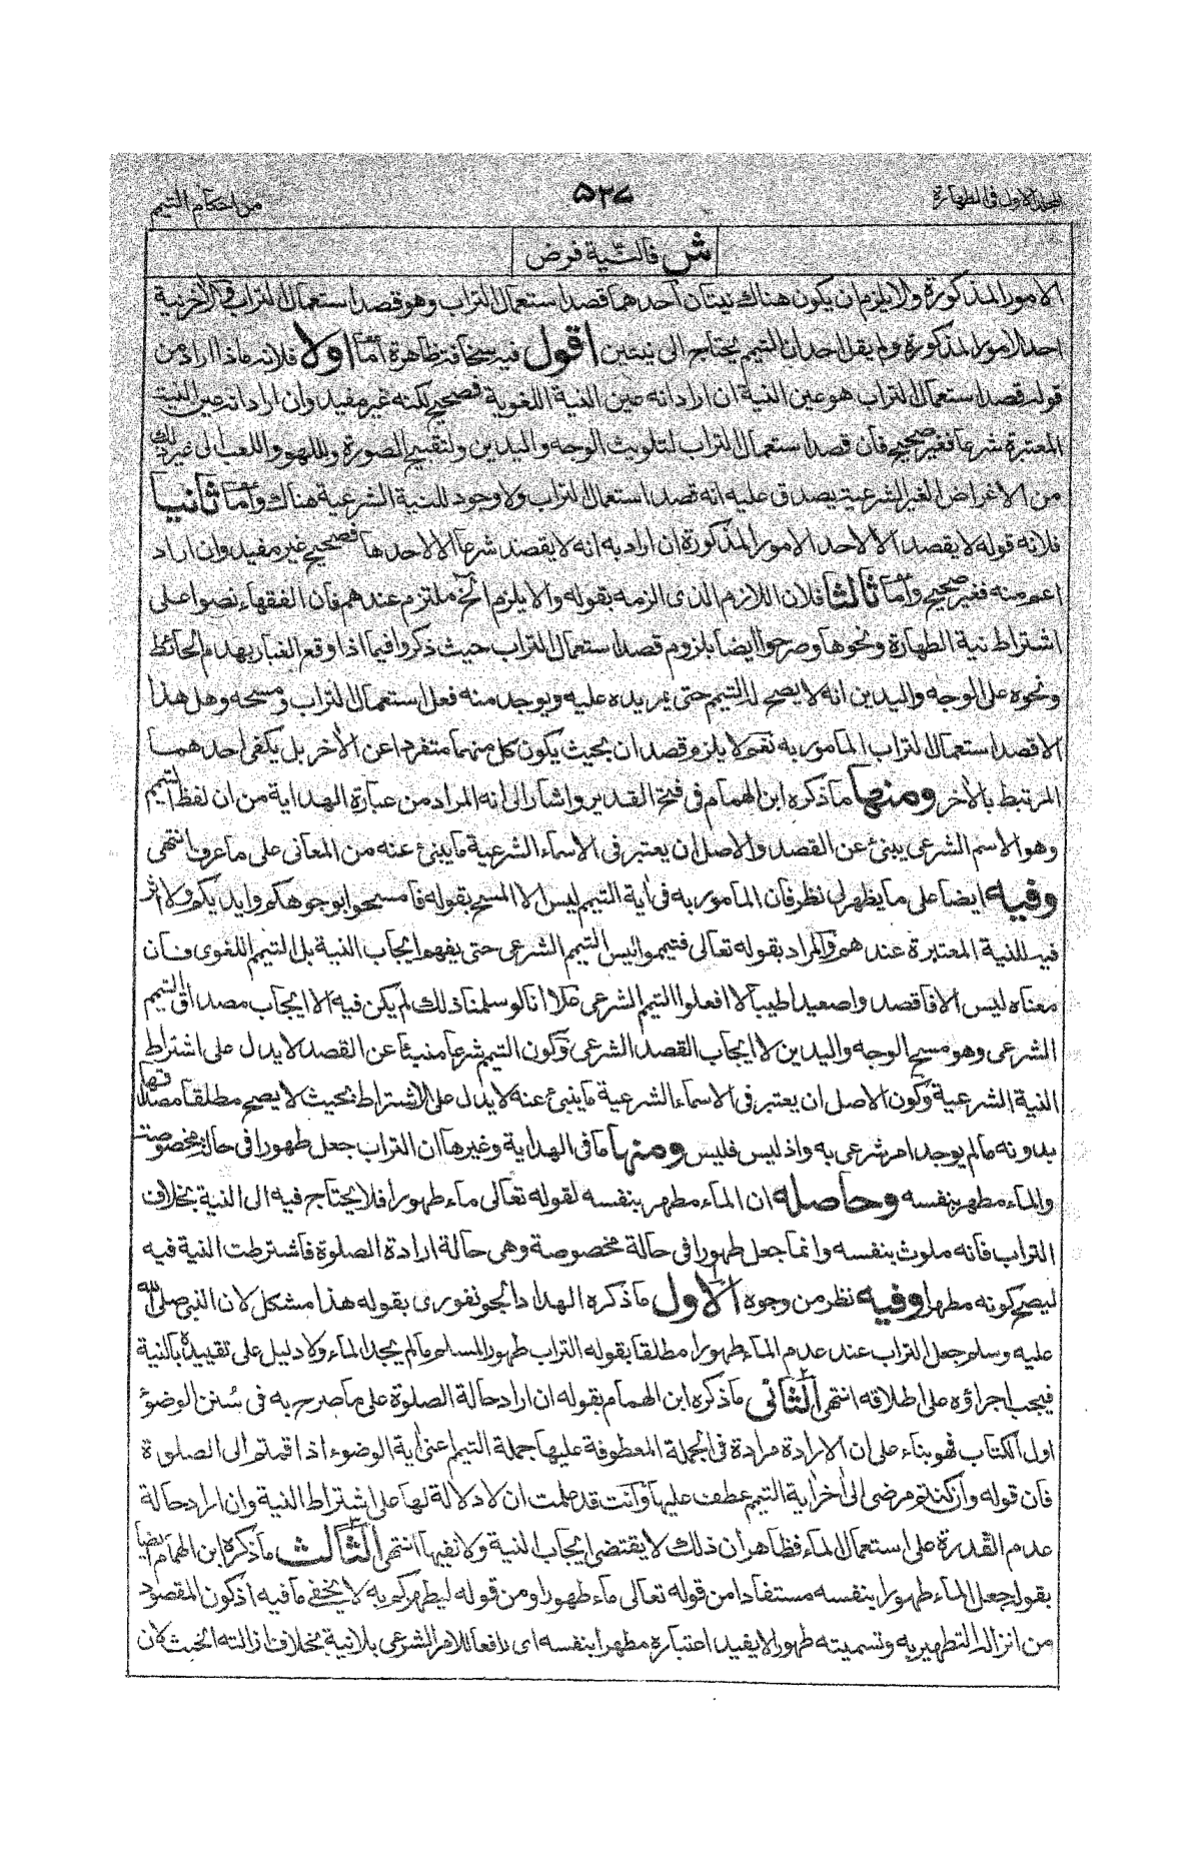 المجلد الاول فى الطهارة ٥٣٧ من احكام التيمم
ش فالنية فرض
الامور المذكورة ولا يلزم ان يكون هناك نيتان احدهما قصد استعمال التراب وهو قصد استعمال التراب والاخر نية
احد الامور المذكورة ولم يقل احد ان التيمم يحتاج الى نيتين اقول فيه سخافة ظاهرة اما اولا فلانه ماذا اراد من
قوله قصد استعمال التراب هو عين النية ان اراد انه عين النية اللغوية فصحيح لكنه غير مفيد وان اراد انه عين النية
المعتبرة شرعا فغير صحيح فان قصد استعمال التراب لتلويث الوجه واليدين ولتقبيح الصورة وللهو واللعب الى غير ذلك
من الاغراض الغير الشرعية يصدق عليه انه قصد استعمال التراب ولا وجود للنية الشرعية هناك واما ثانيا
فلانه قوله لا يقصد الا لاحد الامور المذكورة ان اراد به انه لا يقصد شرعا الا لاحدها فصحيح غير مفيد وان اراد
اعم منه فغير صحيح واما ثالثا فلان اللازم الذى الزمه بقوله والا يلزم الخ ملتزم عندهم فان الفقهاء نصوا على
اشتراط نية الطهارة ونحوها وصرحوا ايضا بلزوم قصد استعمال التراب حيث ذكروا فيما اذا وقع الغبار بهدم الحائط
ونحوه على الوجه واليدين انه لا يصح له التيمم حتى يمر يده عليه ويوجد منه فعل استعمال التراب ومسحه وهل هذا
الا قصد استعمال التراب المامور به نعم لا يلزم قصد ان بحيث يكون كل منهما متفردا عن الاخر بل يكفى احدهما
المرتبط بالاخر ومنها ما ذكره ابن الهمام فى فتح القدير واشار الى انه المراد من عبارة الهداية من ان لفظ التيمم
وهو الاسم الشرعى ينبئ عن القصد والاصل ان يعتبر فى الاسماء الشرعية ما ينبئ عنه من المعانى على ما عرف انتهى
وفيه ايضا على ما يظهر لى نظر فان المامور به فى اية التيمم ليس الا المسح بقوله فامسحوا بوجوهكم وايديكم ولا اثر
فيه للنية المعتبرة عندهم والمراد بقوله تعالى فتيمموا ليس التيمم الشرعى حتى يفهم ايجاب النية بل التيمم اللغوى فان
معناه ليس الا فاقصدوا صعيدا طيبا لا افعلوا التيمم الشرعى علا انا لو سلمنا ذلك لم يكن فيه الا ايجاب مصداق التيمم
الشرعى وهو مسح الوجه واليدين لا ايجاب القصد الشرعى وكون التيمم شرعا منبئا عن القصد لا يدل على اشتراط
النية الشرعية وكون الاصل ان يعتبر فى الاسماء الشرعية ما ينبئ عنه لا يدل على الاشتراط بحيث لا يصح مطلقا مصداقها
بدونه ما لم يوجد امر شرعى به واذ ليس فليس ومنها ما فى الهداية وغيرها ان التراب جعل طهورا فى حالة مخصوصة
والماء مطهر بنفسه وحاصله ان الماء مطهر بنفسه لقوله تعالى ماء طهورا فلا يحتاج فيه الى النية بخلاف
التراب فانه ملوث بنفسه وانما جعل طهورا فى حالة مخصوصة وهى حالة ارادة الصلوة فاشترطت النية فيه
ليصح كونه مطهرا وفيه نظر من وجوه الاول ما ذكره الهداد الجونفورى بقوله هذا مشكل لان النبى صلى الله
عليه وسلم جعل التراب عند عدم الماء طهورا مطلقا بقوله التراب طهور المسلم ما لم يجد الماء ولا دليل على تقييده بالنية
فيجب اجراؤه على اطلاقه انتهى الثانى ما ذكره ابن الهمام بقوله ان اراد حالة الصلوة على ما صرح به فى سنن الوضوء
اول الكتاب فهو بناء على ان الارادة مرادة فى الجملة المعطوفة عليها جملة التيمم اعنى اية الوضوء اذا قمتم الى الصلوة
فان قوله وان كنتم مرضى الى اخر اية التيمم عطف عليها وانت قد علمت ان لا دلالة لها على اشتراط النية وان اراد حالة
عدم القدرة على استعمال الماء فظاهر ان ذلك لا يقتضى ايجاب النية ولا نفيها انتهى الثالث ما ذكره ابن الهمام ايضا
بقوله جعل الماء طهورا بنفسه مستفادا من قوله تعالى ماء طهورا ومن قوله ليطهركم به لا يخفى ما فيه اذ كون المقصود
من انزاله التطهير به وتسميته طهورا لا يفيد اعتباره مطهرا بنفسه اى رافعا للامر الشرعى بلا نية بخلاف ازالته الخبث لان